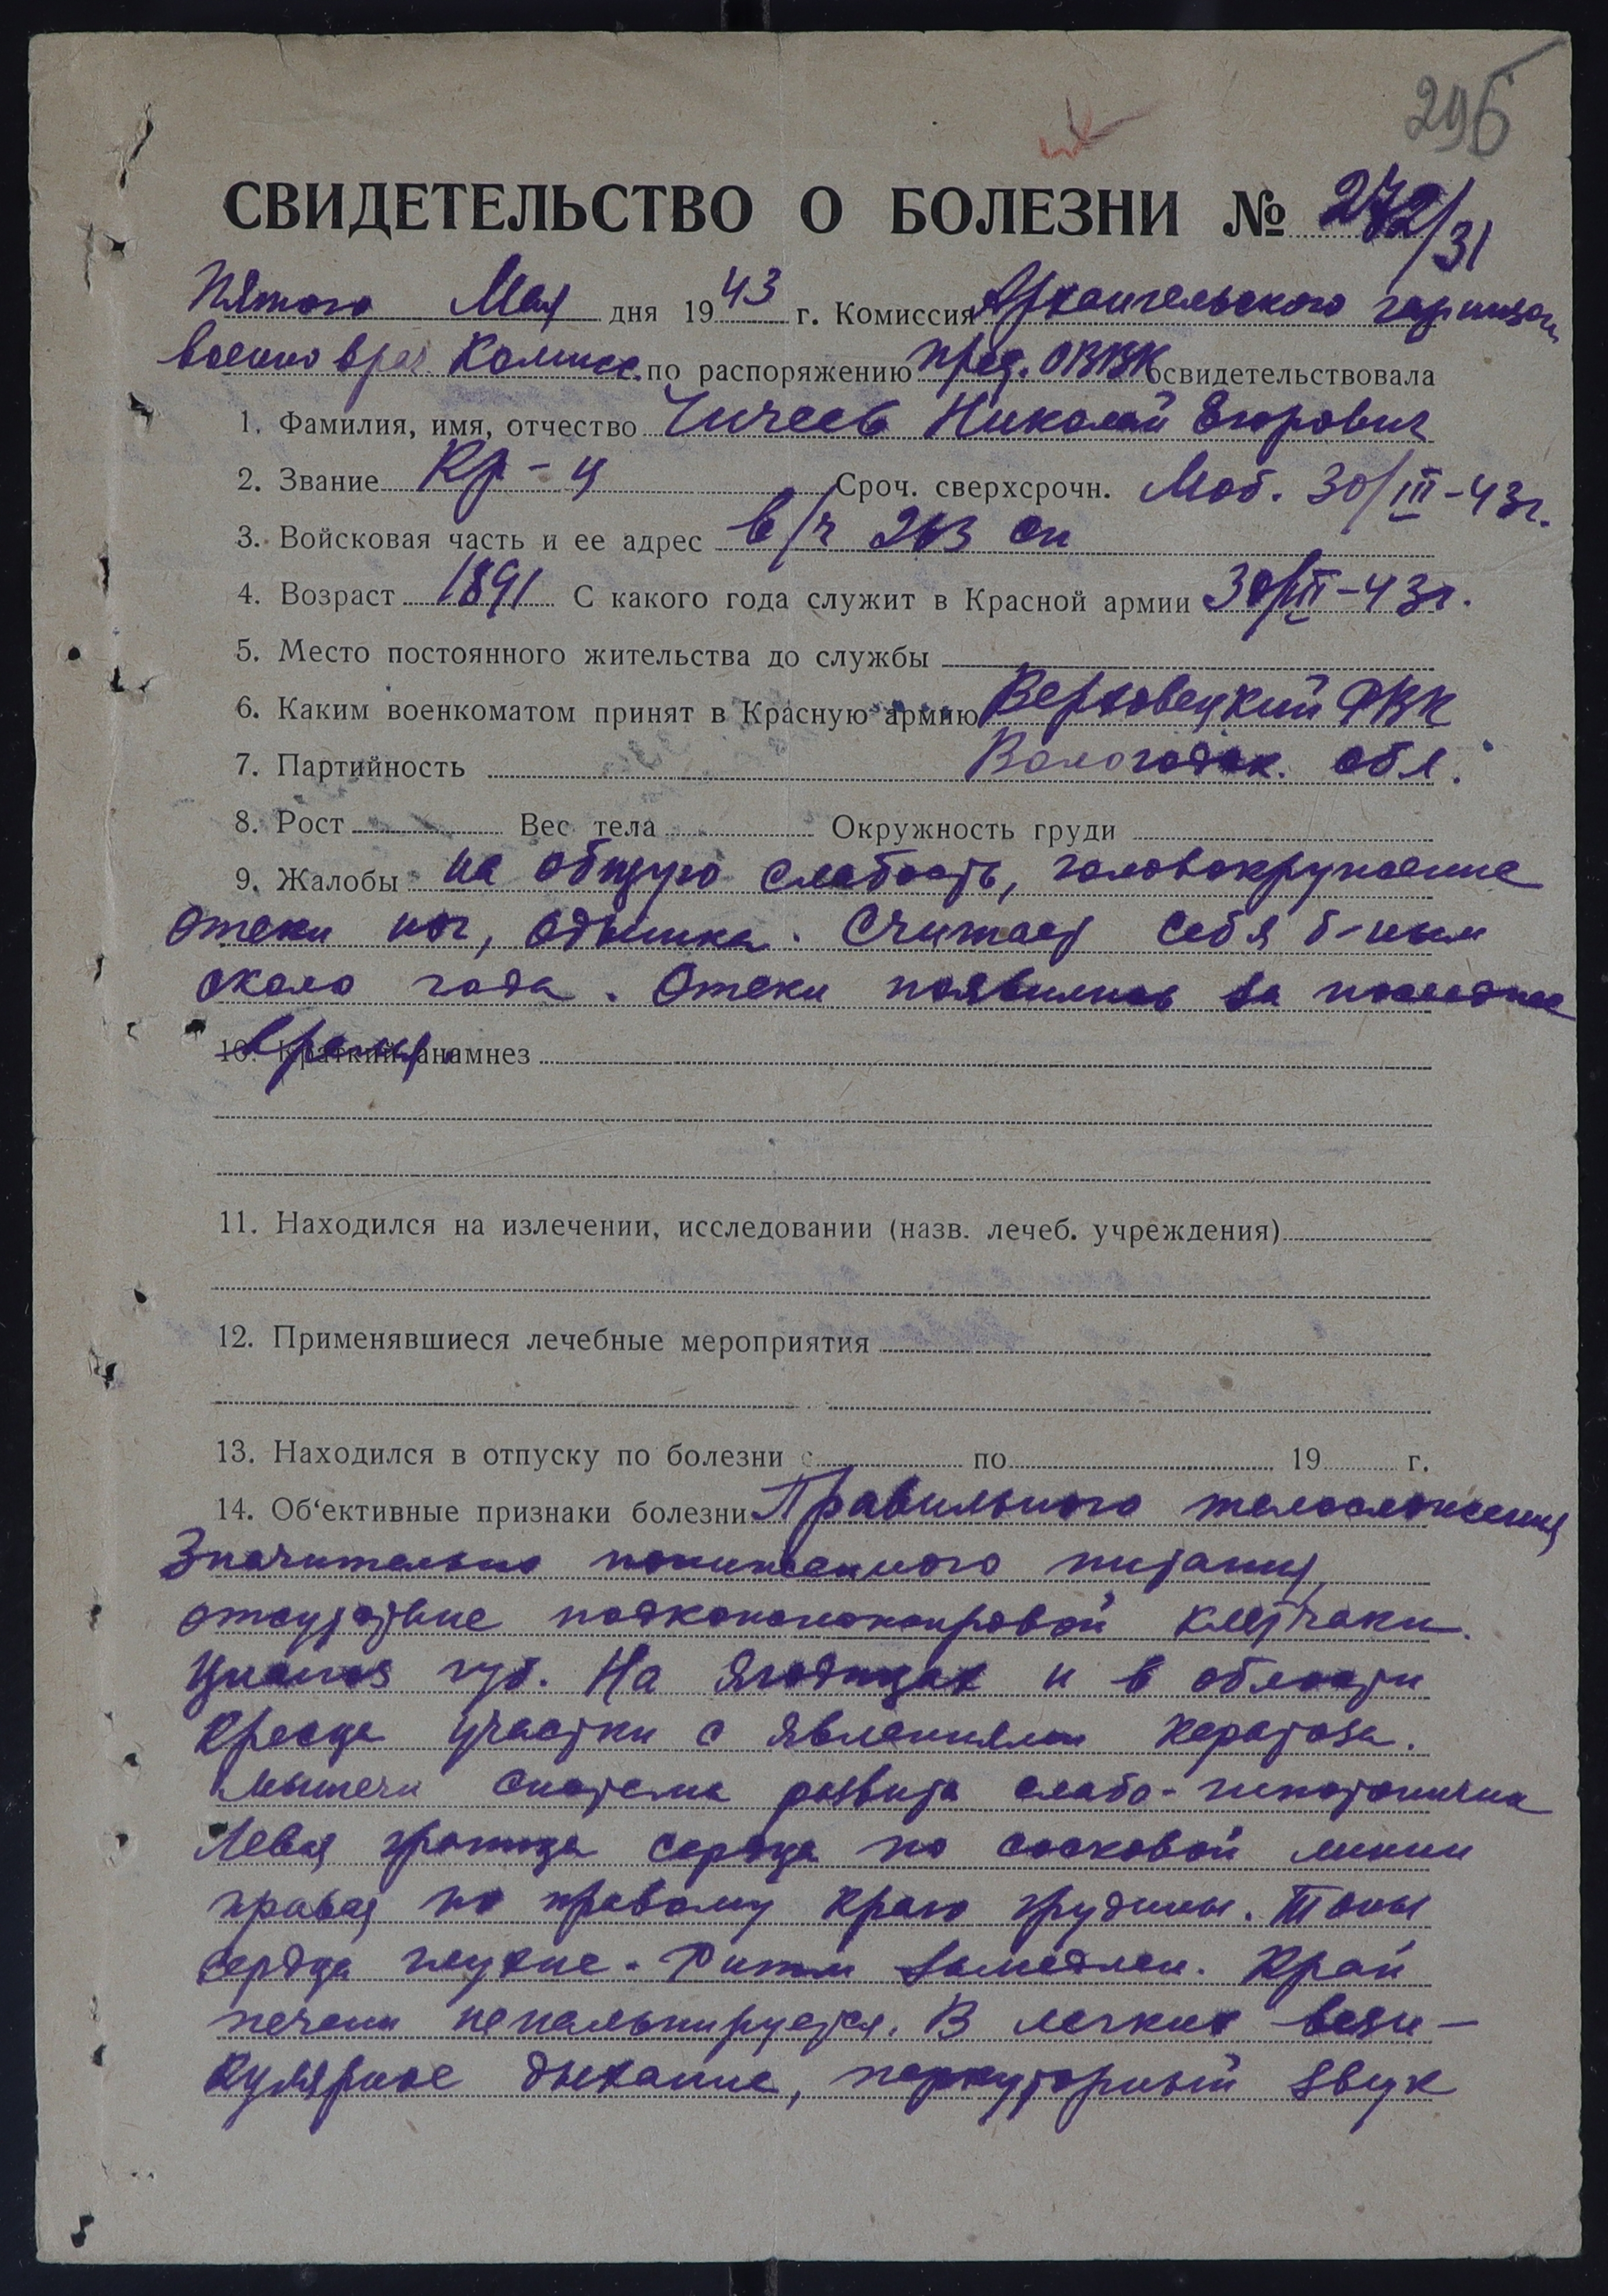 296
СВИДЕТЕЛЬСТВО О БОЛЕЗНИ № 272/31
Пятого Мая дня 1943 г. Комиссия Архангельского гарнизон
военно врач. Комисс. по распоряжению пред. ОВВК освидетельствовала
1. Фамилия, имя, отчество Чичеев Николай Егорович
2. Звание Кр-ц Сроч. сверхсрочн. Моб. 30/III-43г.
3. Войсковая часть и ее адрес в/ч 263 сп
4. Возраст 1891 С какого года служит в Красной армии 30/III-43г.
5. Место постоянного жительства до службы
6. Каким военкоматом принят в Красную армию Верховецкий РВК
7. Партийность Вологодск. обл.
8. Рост Вес тела Окружность груди
9. Жалобы на общую слабость, головокружение
отеки ног, одышка. Считает себя б-ным
около года. Отеки появились за последнее
время.
10. Краткий анамнез
11. Находился на излечении, исследовании (назв. лечеб. учреждения)
12. Применявшиеся лечебные мероприятия
13. Находился в отпуску по болезни с по 19 г.
14. Об‘ективные признаки болезни Правильного телосложения
Значительно пониженного питания,
отсутствие подкожножировой клетчаки.
Цианоз губ. На ягодицах и в области
крестца участки с явлениями кератоза.
Мышечн система развита слабо-гипотонична
Левая граница сердца по сосковой линии
правая по правому краю грудины. Тоны
сердца глухие. Ритм замедлен. Край
печени непальпируется. В легких вези-
кулярное дыхание, перкуторный звук